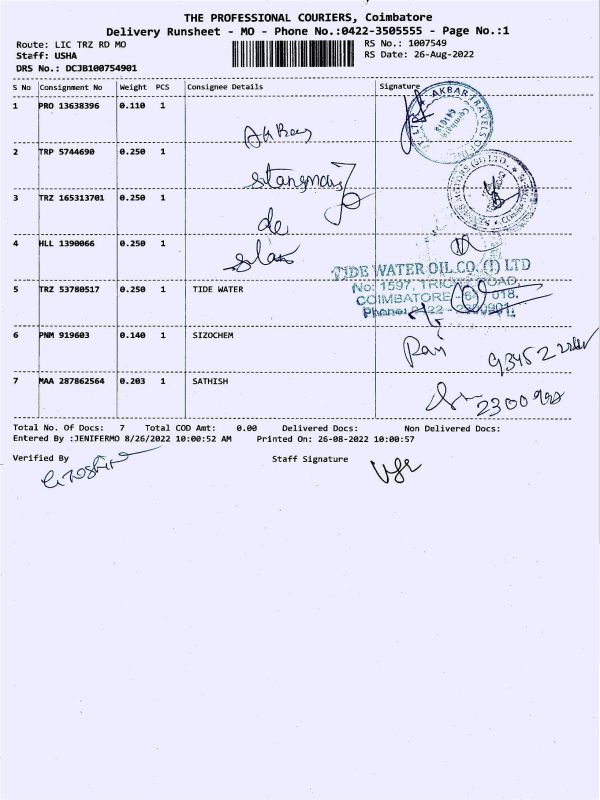 THE PROFESSIONAL COURIERS, Coimbatore
Delivery Runsheet - MO - Phone No.:0422-3505555 - Page No.:1
Route: LIC TRZ RD MO RS No.: 1007549
Staff: USHA RS Date: 26-Aug-2022
DRS No.: DCJB100754901
S No Consignment No Weight PCS Consignee Details Signature
1 PRO 13638396 0.110 1 Akbar
AKBAR TRAVELS OF
2 TRP 5744690 0.250 1
3 TRZ 165313701 0.250 1 de
4 HLL 1390066 0.250 1
TIDE WATER OIL.CO. (I) LTD
No: 1597, TRICHY ROAD,
COIMBATORE - 641 018.
5 TRZ 53780517 0.250 1 TIDE WATER
6 PNM 919603 0.140 1 SIZOCHEM Ravi
7 MAA 287862564 0.203 1 SATHISH
Total No. Of Docs: 7 Total COD Amt: 0.00 Delivered Docs: Non Delivered Docs:
Entered By :JENIFERMO 8/26/2022 10:00:52 AM Printed On: 26-08-2022 10:00:57
Verified By Staff Signature